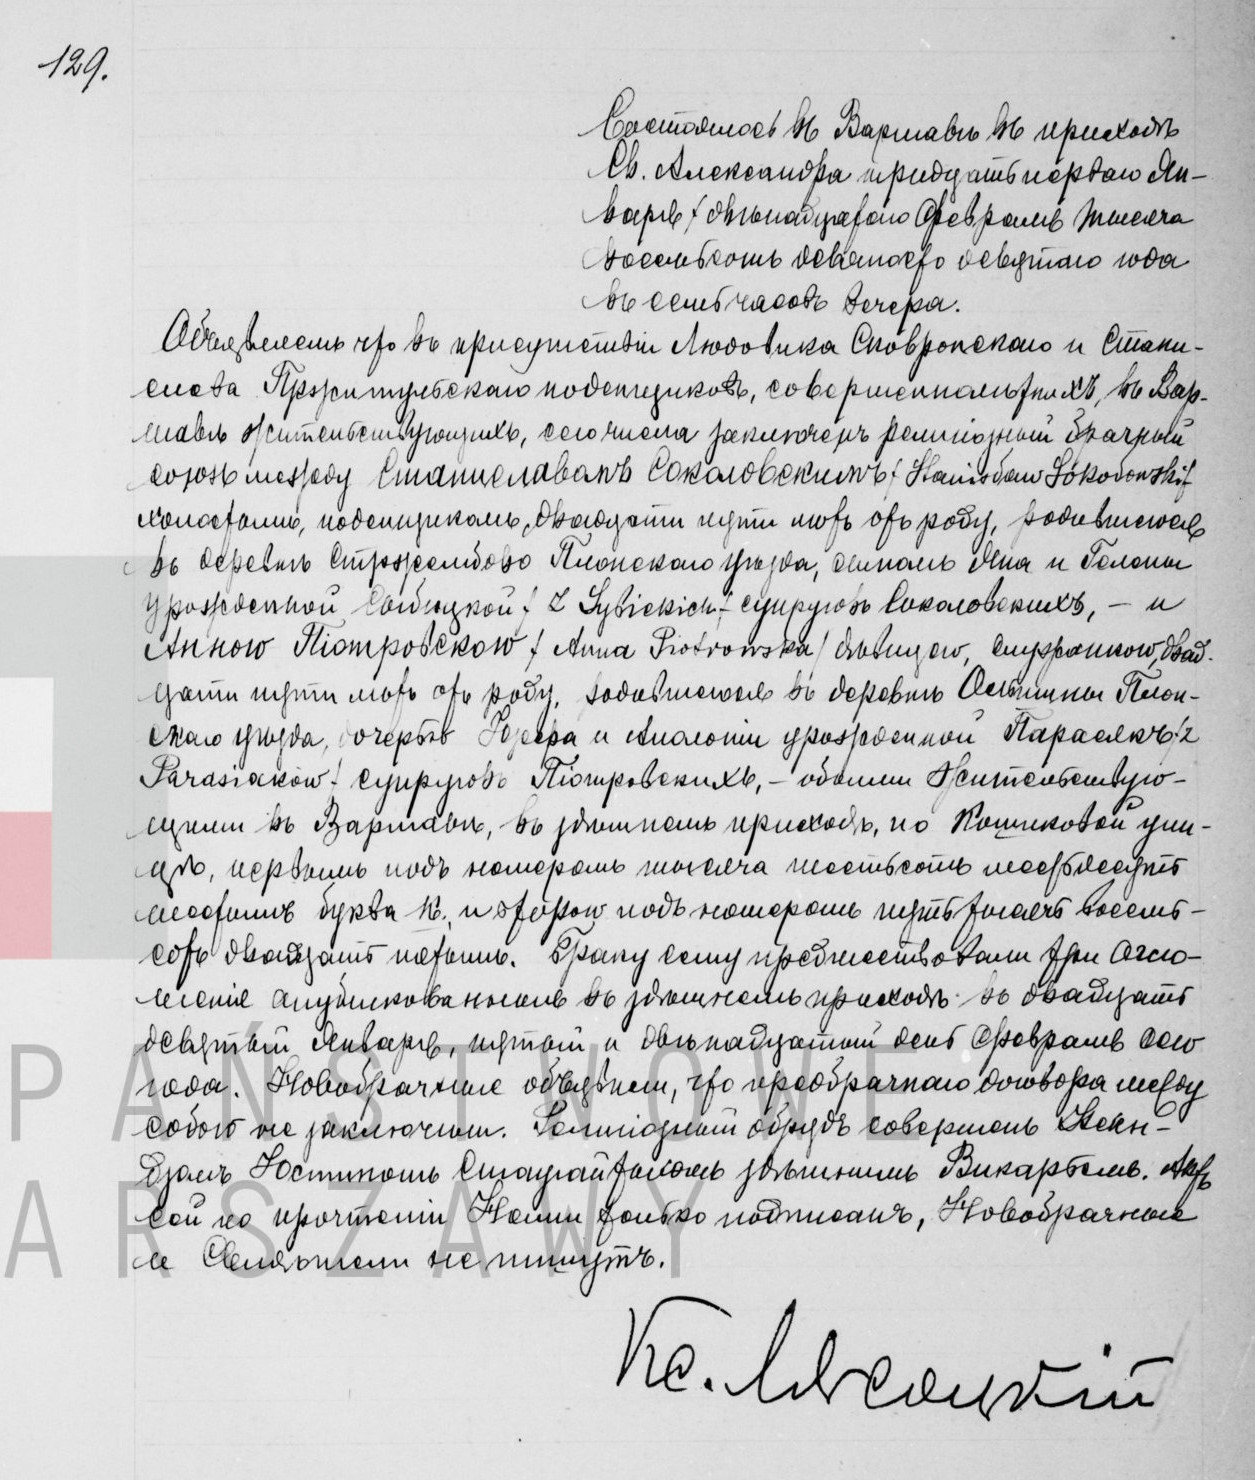 129.
Состоялось въ Варшавѣ въ приходѣ
Св. Александра тридцать перваго Ян-
варя / двѣнадцатаго Февраля тысяча
восемьсотъ девяносто девятаго года
въ семь часовъ вечера.
Объявляемъ что въ присутствіи Людовика Сковронскаго и Стани-
слава Пржитульскаго поденщиковъ, совершеннолѣтнихъ, въ Вар-
шавѣ жительствующихъ, сего числа заключенъ религіозный брачный
союзъ между Станиславомъ Соколовскимъ / Stanisław Sokołowski /
холостымъ, поденщикомъ, двадцати пяти лѣтъ отъ роду, родившимся
въ деревнѣ Стржембово Плонскаго уѣзда, сыномъ Яна и Гелены
урожденной Сыбицкой / z Sybickich / супруговъ Соколовскихъ, – и
Анною Піотровскою / Anna Piotrowska / дѣвицею, служанкою, двад-
цати пяти лѣтъ отъ роду, родившеюся въ деревнѣ Плон-
скаго уѣзда, дочерью Юзефа и Аполоніи урожденной Парасякъ / z
Parasiaków / супруговъ Піотровскихъ, – обоими жительствую-
щими въ Варшавѣ, въ здѣшнемъ приходѣ, по Кошиковой ули-
цѣ, первымъ подъ номеромъ тысяча шестьсотъ шестьдесятъ
шестымъ буква К., и второю подъ номеромъ пять тысячъ восемь-
сотъ двадцать пятымъ. Браку сему предшествовали три огло-
шенія опубликованныя въ здѣшнемъ приходѣ въ двадцать
девятый Января, пятый и двѣнадцатый день Февраля сего
года. Новобрачные объявили, что предбрачнаго договора между
собою не заключили. Религіозный обрядъ совершенъ Ксен-
дзомъ Юстиномъ здѣшнимъ Викарьемъ. Актъ
сей по прочтеніи Нами только подписанъ, Новобрачные
и Свидѣтели не пишутъ.
Кс.